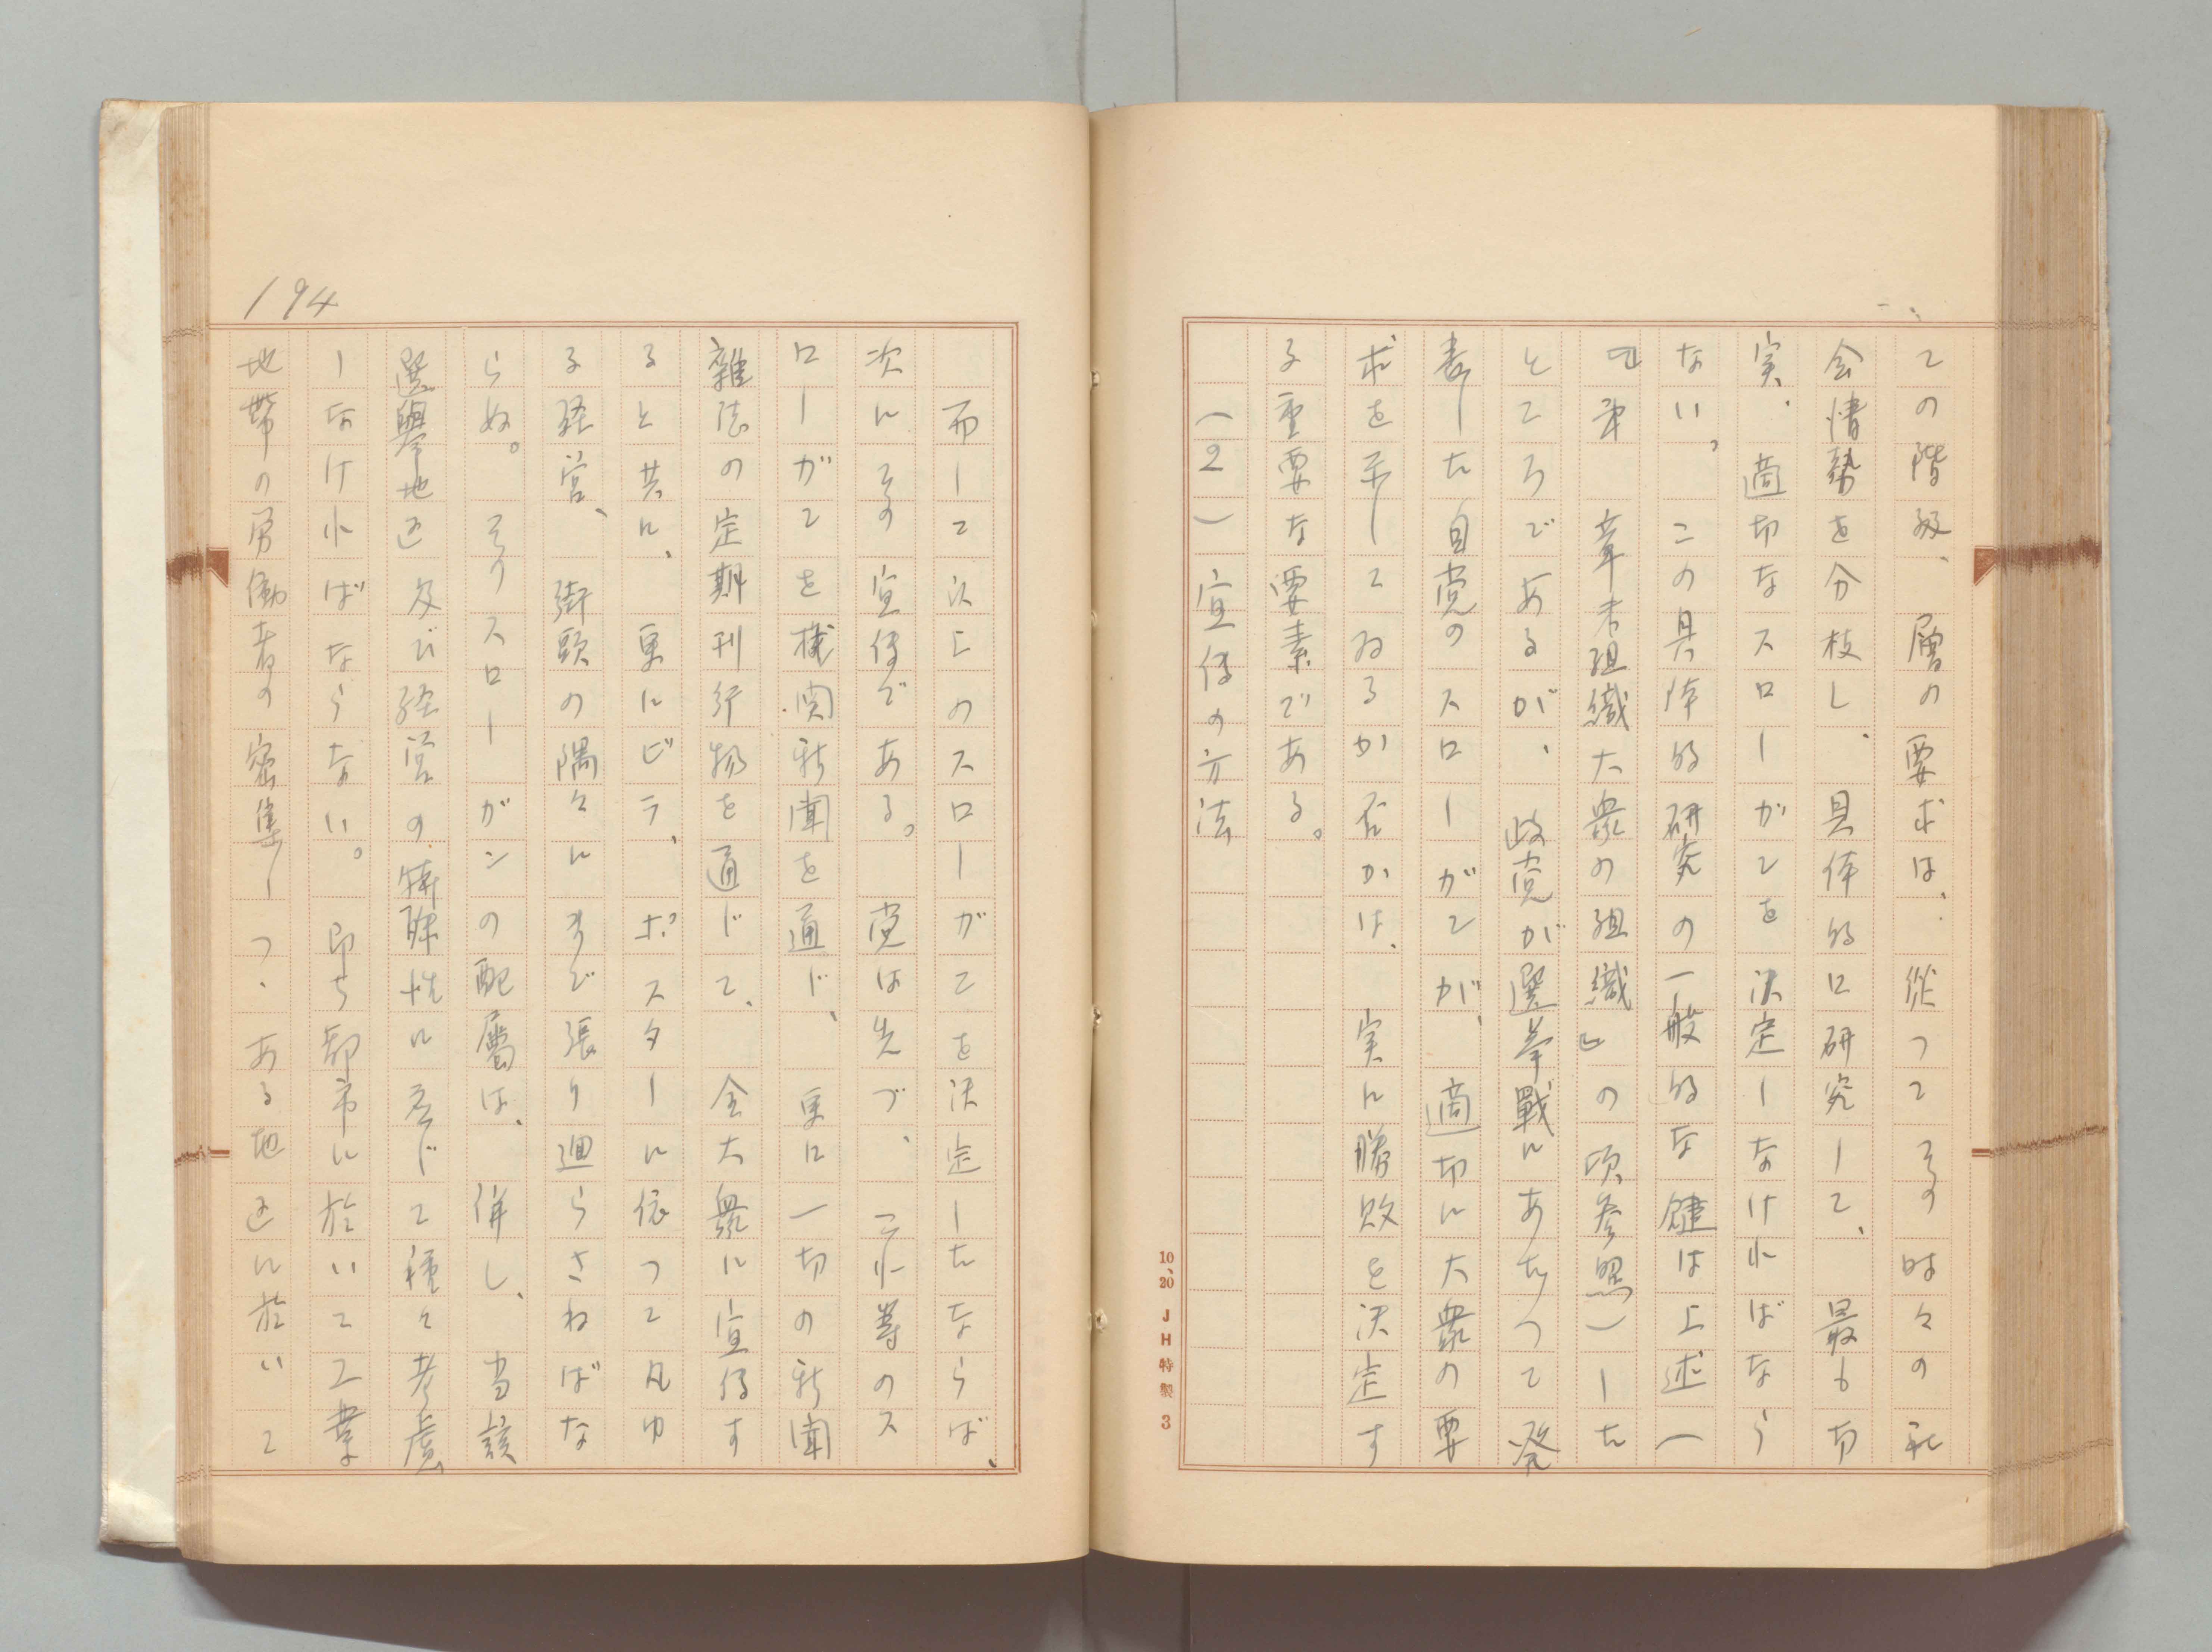 ての階級、層の要求は、従つてその時々の社
会情勢を分枝し、具体的に研究して、最も切
実、適切なスローガンを決定しなければなら
ない。この具体的研究の一般的な鍵は上述(
『第　章未組織大衆の組織』の項参照)した
ところであるが、政党が選挙戦にあたつて発
表した自党のスローガンが、適切に大衆の要
求を示してゐるか否かは、実に勝敗を決定す
る重要な要素である。
(2)宣伝の方法
10、20 JH特製 3
而して以上のスローガンを決定したならば、
次にその宣伝である。党は先づ、これ等のス
ローガンを機関新聞を通じ、更に一切の新聞
雑誌の定期刊行物を通じて、全大衆に宣伝す
ると共に、更にビラ、ポスターに依つて凡ゆ
る経営、街頭の隅々にまで張り廻らさねばな
らぬ。そのスローガンの配属は、併し、当該
選挙地区及び経営の特殊性に応じて種々考慮
しなければならない。即ち都市に於いて工業
地帯の労働者の密集しつゝある地区に於いて
194